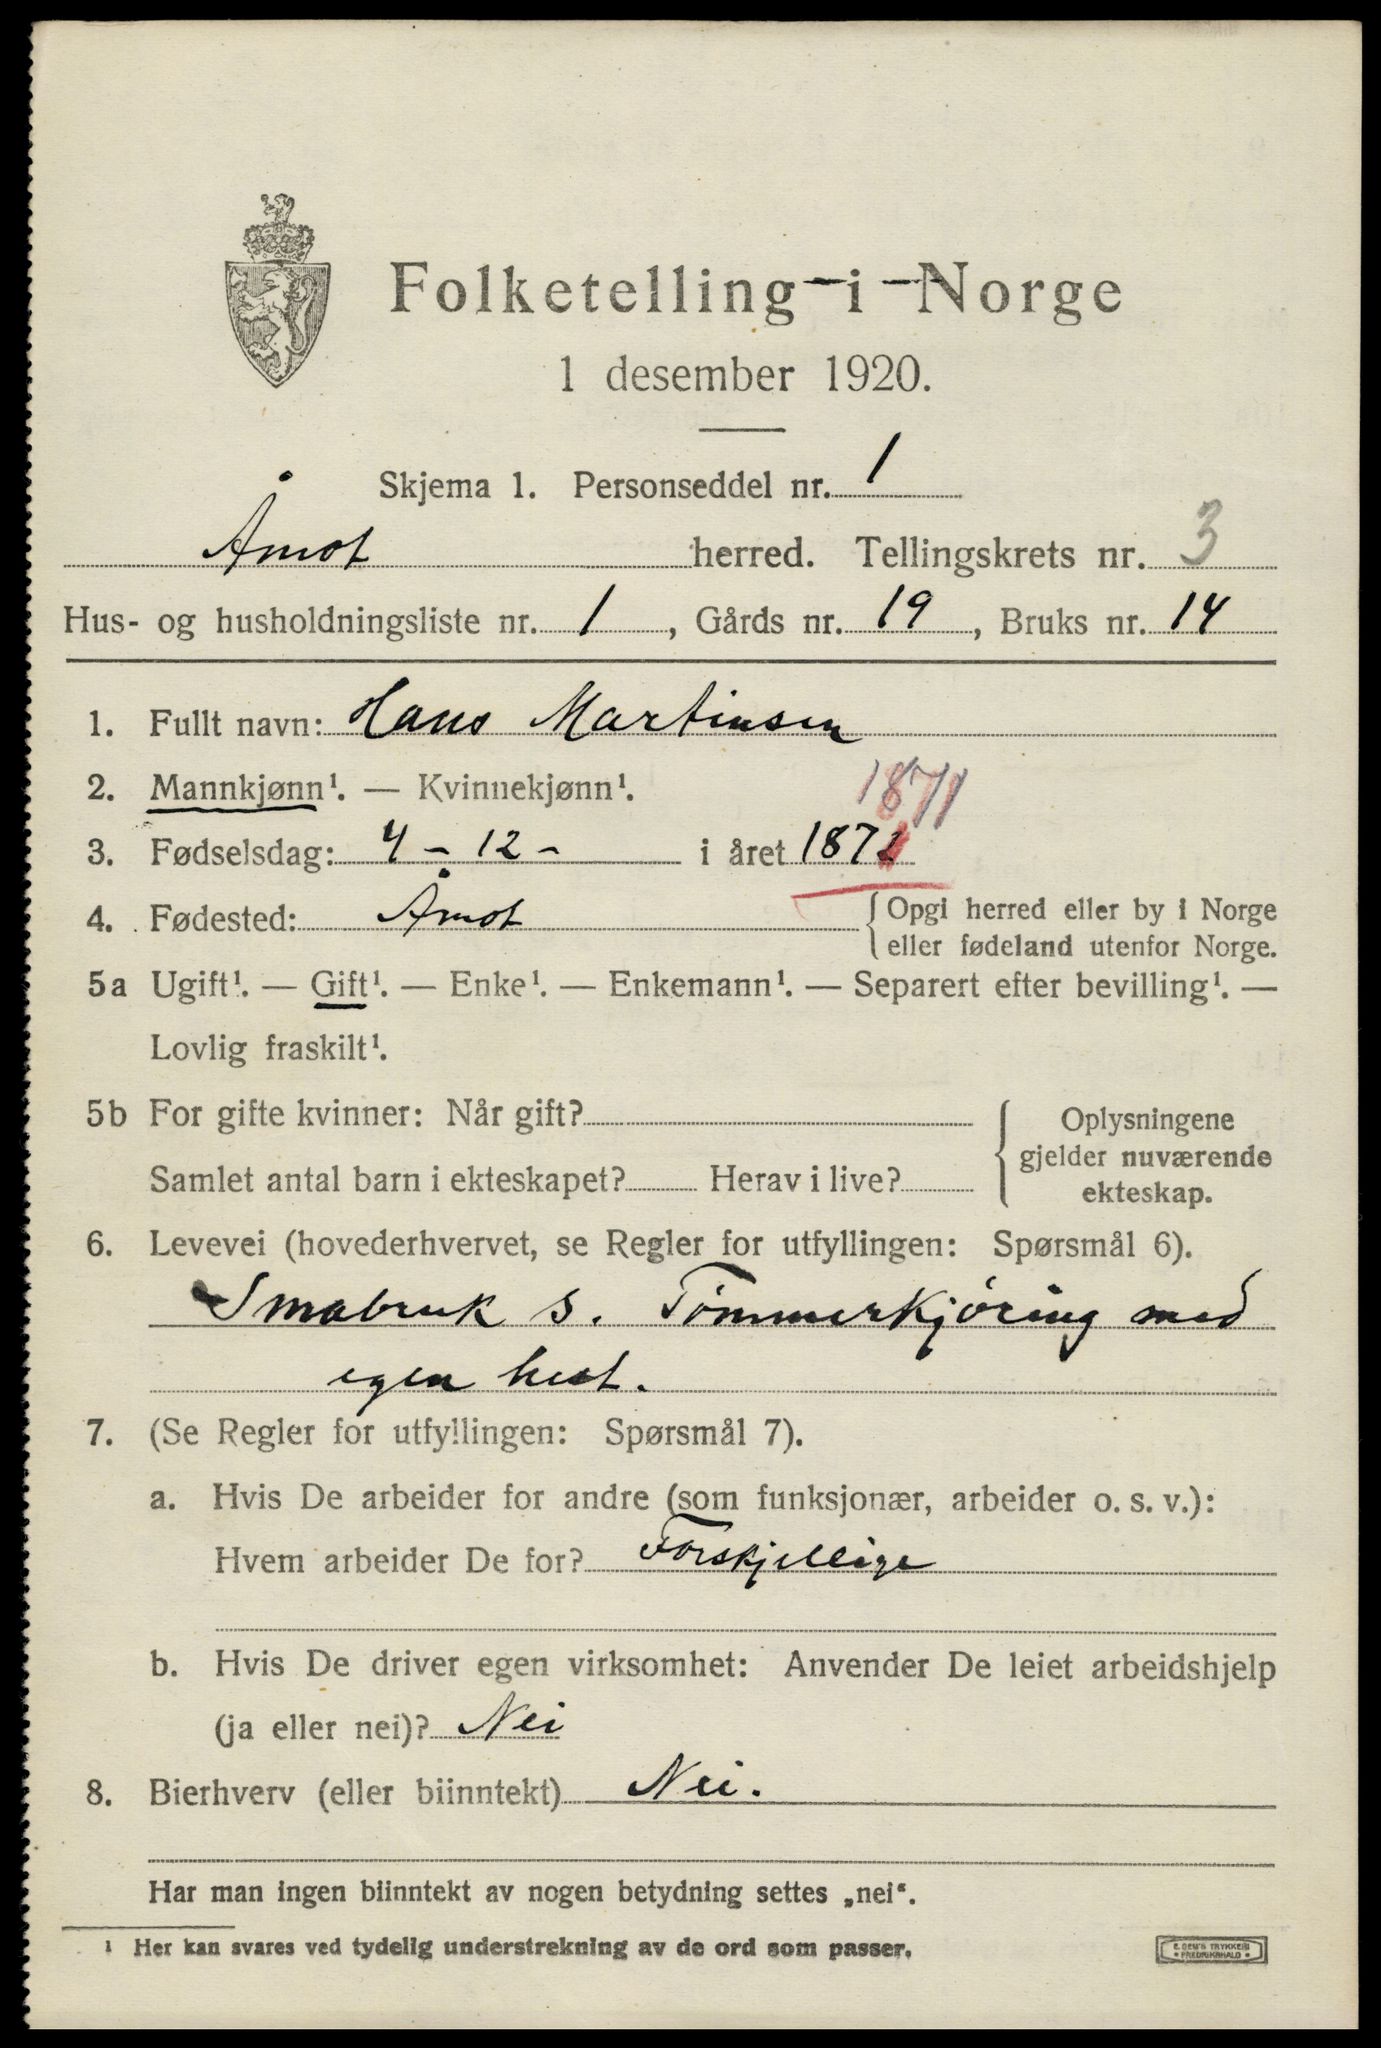 Folketelling i Norge
1 desember 1920.
Skjema 1. Personseddel nr. 1
Åmot herred. Tellingskrets nr. 3
Hus- og husholdningsliste nr. 1, Gårds nr. 19, Bruks nr. 14
1. Fullt navn: Hans Martinsen
2. Mannkjønn¹. — Kvinnekjønn¹.
1871
3. Fødselsdag: 4 - 12 - i året 1871
4. Fødested: Åmot { Opgi herred eller by i Norge
eller fødeland utenfor Norge.
5a Ugift¹. — Gift¹. — Enke¹. — Enkemann¹. — Separert efter bevilling¹. —
Lovlig fraskilt¹.
5b For gifte kvinner: Når gift? { Oplysningene
gjelder nuværende
Samlet antal barn i ekteskapet? Herav i live? ekteskap.
6. Levevei (hovederhvervet, se Regler for utfyllingen: Spørsmål 6).
Småbruk s. Tømmerkjöring med
egen hest.
7. (Se Regler for utfyllingen: Spørsmål 7).
a. Hvis De arbeider for andre (som funksjonær, arbeider o. s. v.):
Hvem arbeider De for? Forskjellige
b. Hvis De driver egen virksomhet: Anvender De leiet arbeidshjelp
(ja eller nei)? Nei
8. Bierhverv (eller biinntekt) Nei.
Har man ingen biinntekt av nogen betydning settes „nei“.
¹ Her kan svares ved tydelig understrekning av de ord som passer.
E. SEM'S TRYKKERI
• FREDRIKSHALD •